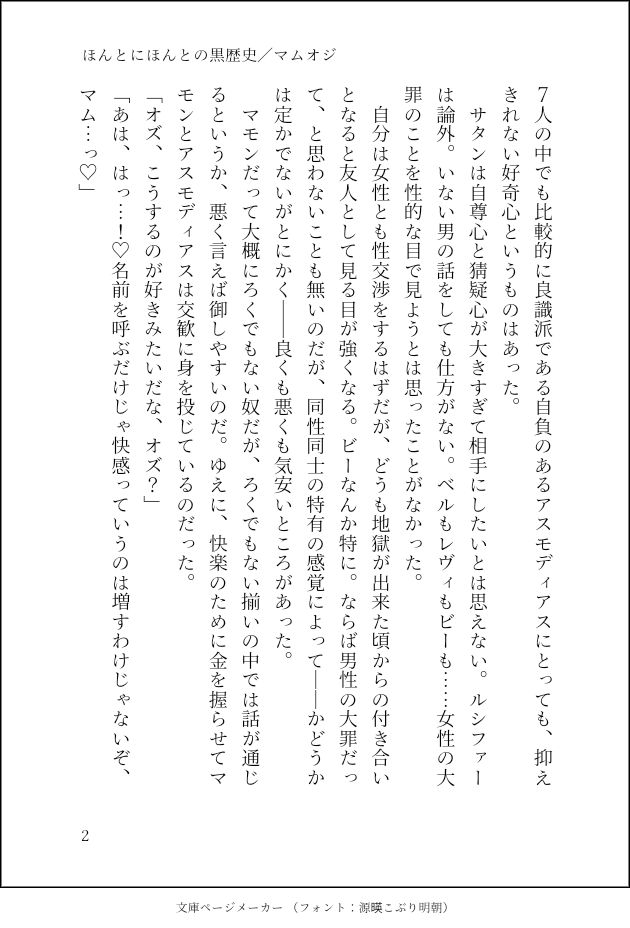 ほんとにほんとの黒歴史／マムオジ
７人の中でも比較的に良識派である自負のあるアスモディアスにとっても、抑え
きれない好奇心というものはあった。
　サタンは自尊心と猜疑心が大きすぎて相手にしたいとは思えない。ルシファー
は論外。いない男の話をしても仕方がない。ベルもレヴィもビーも……女性の大
罪のことを性的な目で見ようとは思ったことがなかった。
　自分は女性とも性交渉をするはずだが、どうも地獄が出来た頃からの付き合い
となると友人として見る目が強くなる。ビーなんか特に。ならば男性の大罪だっ
て、と思わないことも無いのだが、同性同士の特有の感覚によって――かどうか
は定かでないがとにかく――良くも悪くも気安いところがあった。
　マモンだって大概にろくでもない奴だが、ろくでもない揃いの中では話が通じ
るというか、悪く言えば御しやすいのだ。ゆえに、快楽のために金を握らせてマ
モンとアスモディアスは交歓に身を投じているのだった。
「オズ、こうするのが好きみたいだな、オズ？」
「あは、はっ…！♡名前を呼ぶだけじゃ快感っていうのは増すわけじゃないぞ、
マム…っ♡」
2
文庫ページメーカー（フォント：源暎こぶり明朝）